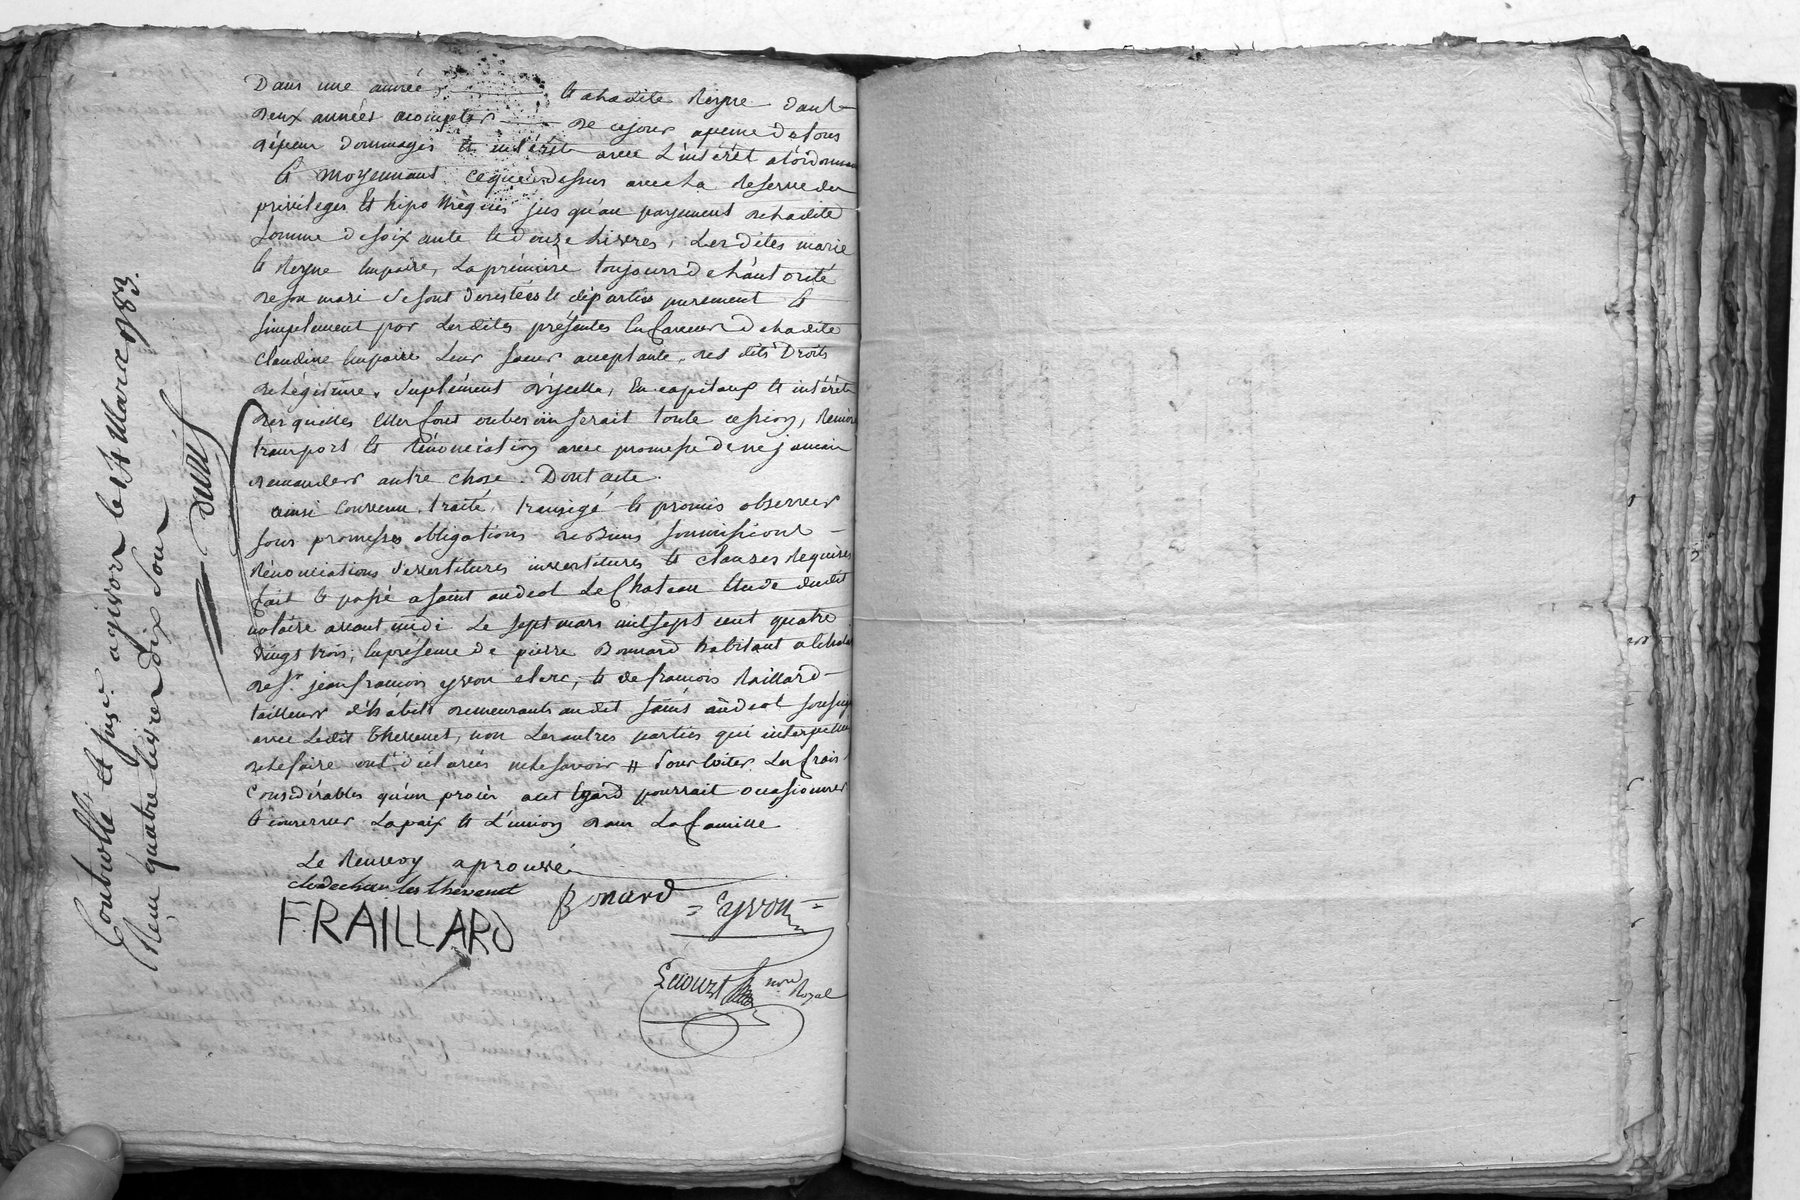 Dans une année, et a ladite Reyne dans
deux années acompter de cejour apeine de tous
dépens dommages et intérêts avec L'intérêt a
Et moyennant cequiedessus avec la Reserve des
privileges et hipothèques jusqu'au payement de ladite
somme de soixante et douze livres, Lesdites marie
et Reyne la première toujours de l'autorité
de son mari se sont desistées et départies purement et
simplement par Lesdites présentes En faveur de ladite
claudine Leur soeur acceptante, des dits Droits
de Légitime, suplément d'ycelle, En capitaux et intérêts
desquelles Elles font toute cession, Remise
transport et Rénonciation avec promesse de ne jamais
demander autre chose. Dont acte.
ainsi convenu, traité, transigé et promis observer
sous promesses obligations de Biens soumissions
Rénonciations devestitures investitures et clauses Requises
fait et passé a saint andeol Le Chateau Etude dudit
notaire avant midi Le sept mars mil sept cent quatre
vingt trois, En présence de pierre Bonnard habitant
de Sr. jean francois yvon clerc, et de francois Raillard
tailleur d'habits demeurants audit saint andeol soussignés
avec Ledit thevenet, non Les autres parties qui interpellées
de le faire ont déclarées ne le savoir # Pour Eviter Les frais
considérables qu'un procès a cet Egard pourrait occasionner
et conserver La paix et L'union dans La famille
Le Renvoy aprouvé
thevenet
Bonard
= Eyvon =
FRAILLARD
nore Royal
Controllé et a givors le 14 Mars 1783.
Reçu quatre livres dix sous